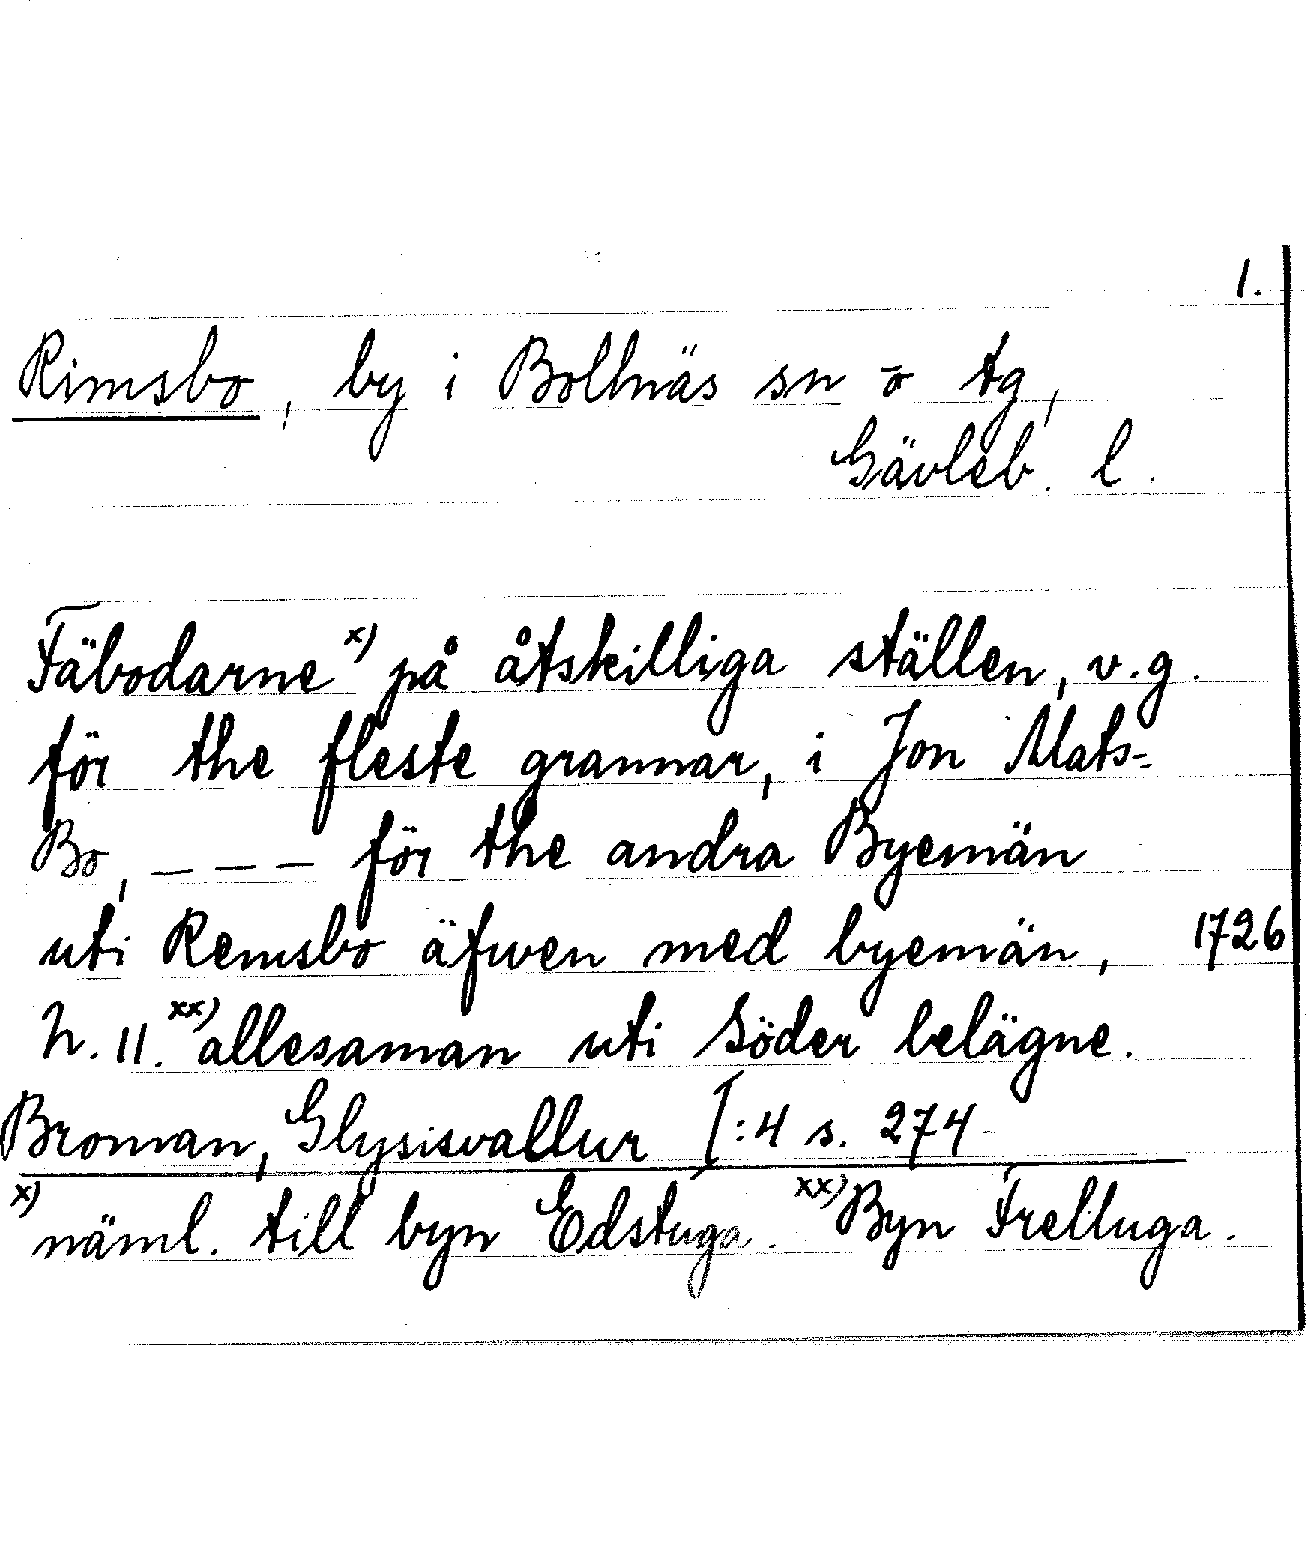 1.
Rimsbo, by i Bollnäs sn o tg,
Gävleb. l.
Fäbodarne x) på åtskilliga ställen, v.g.
för the fleste grannar, i Jon Mats-
Bo, _ _ _ för the andra Byemän
uti Remsbo äfwen med byemän, 1726
n. 11. xx) allesaman uti Söder belägne.
Broman, Glysisvallur I:4 s. 274
x) näml. till byn Edstuga. xx) Byn Frelluga.